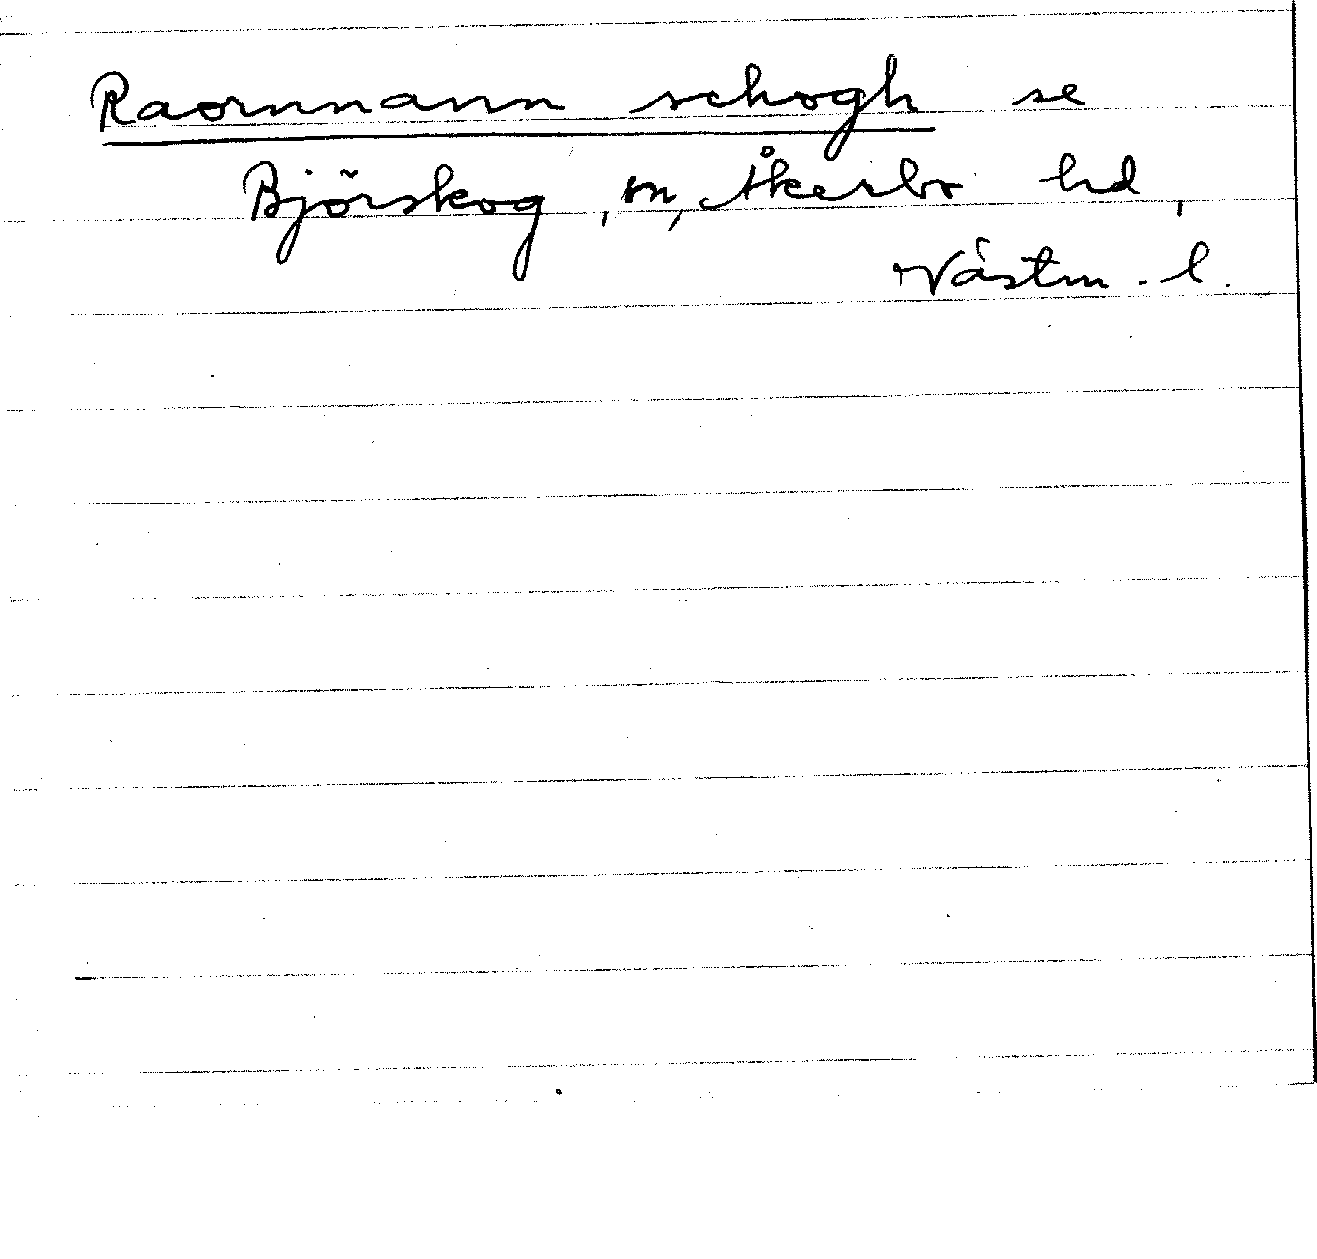 Raornnann schogh se
Björskog, sn, Åkerbo hd,
Västm. l.